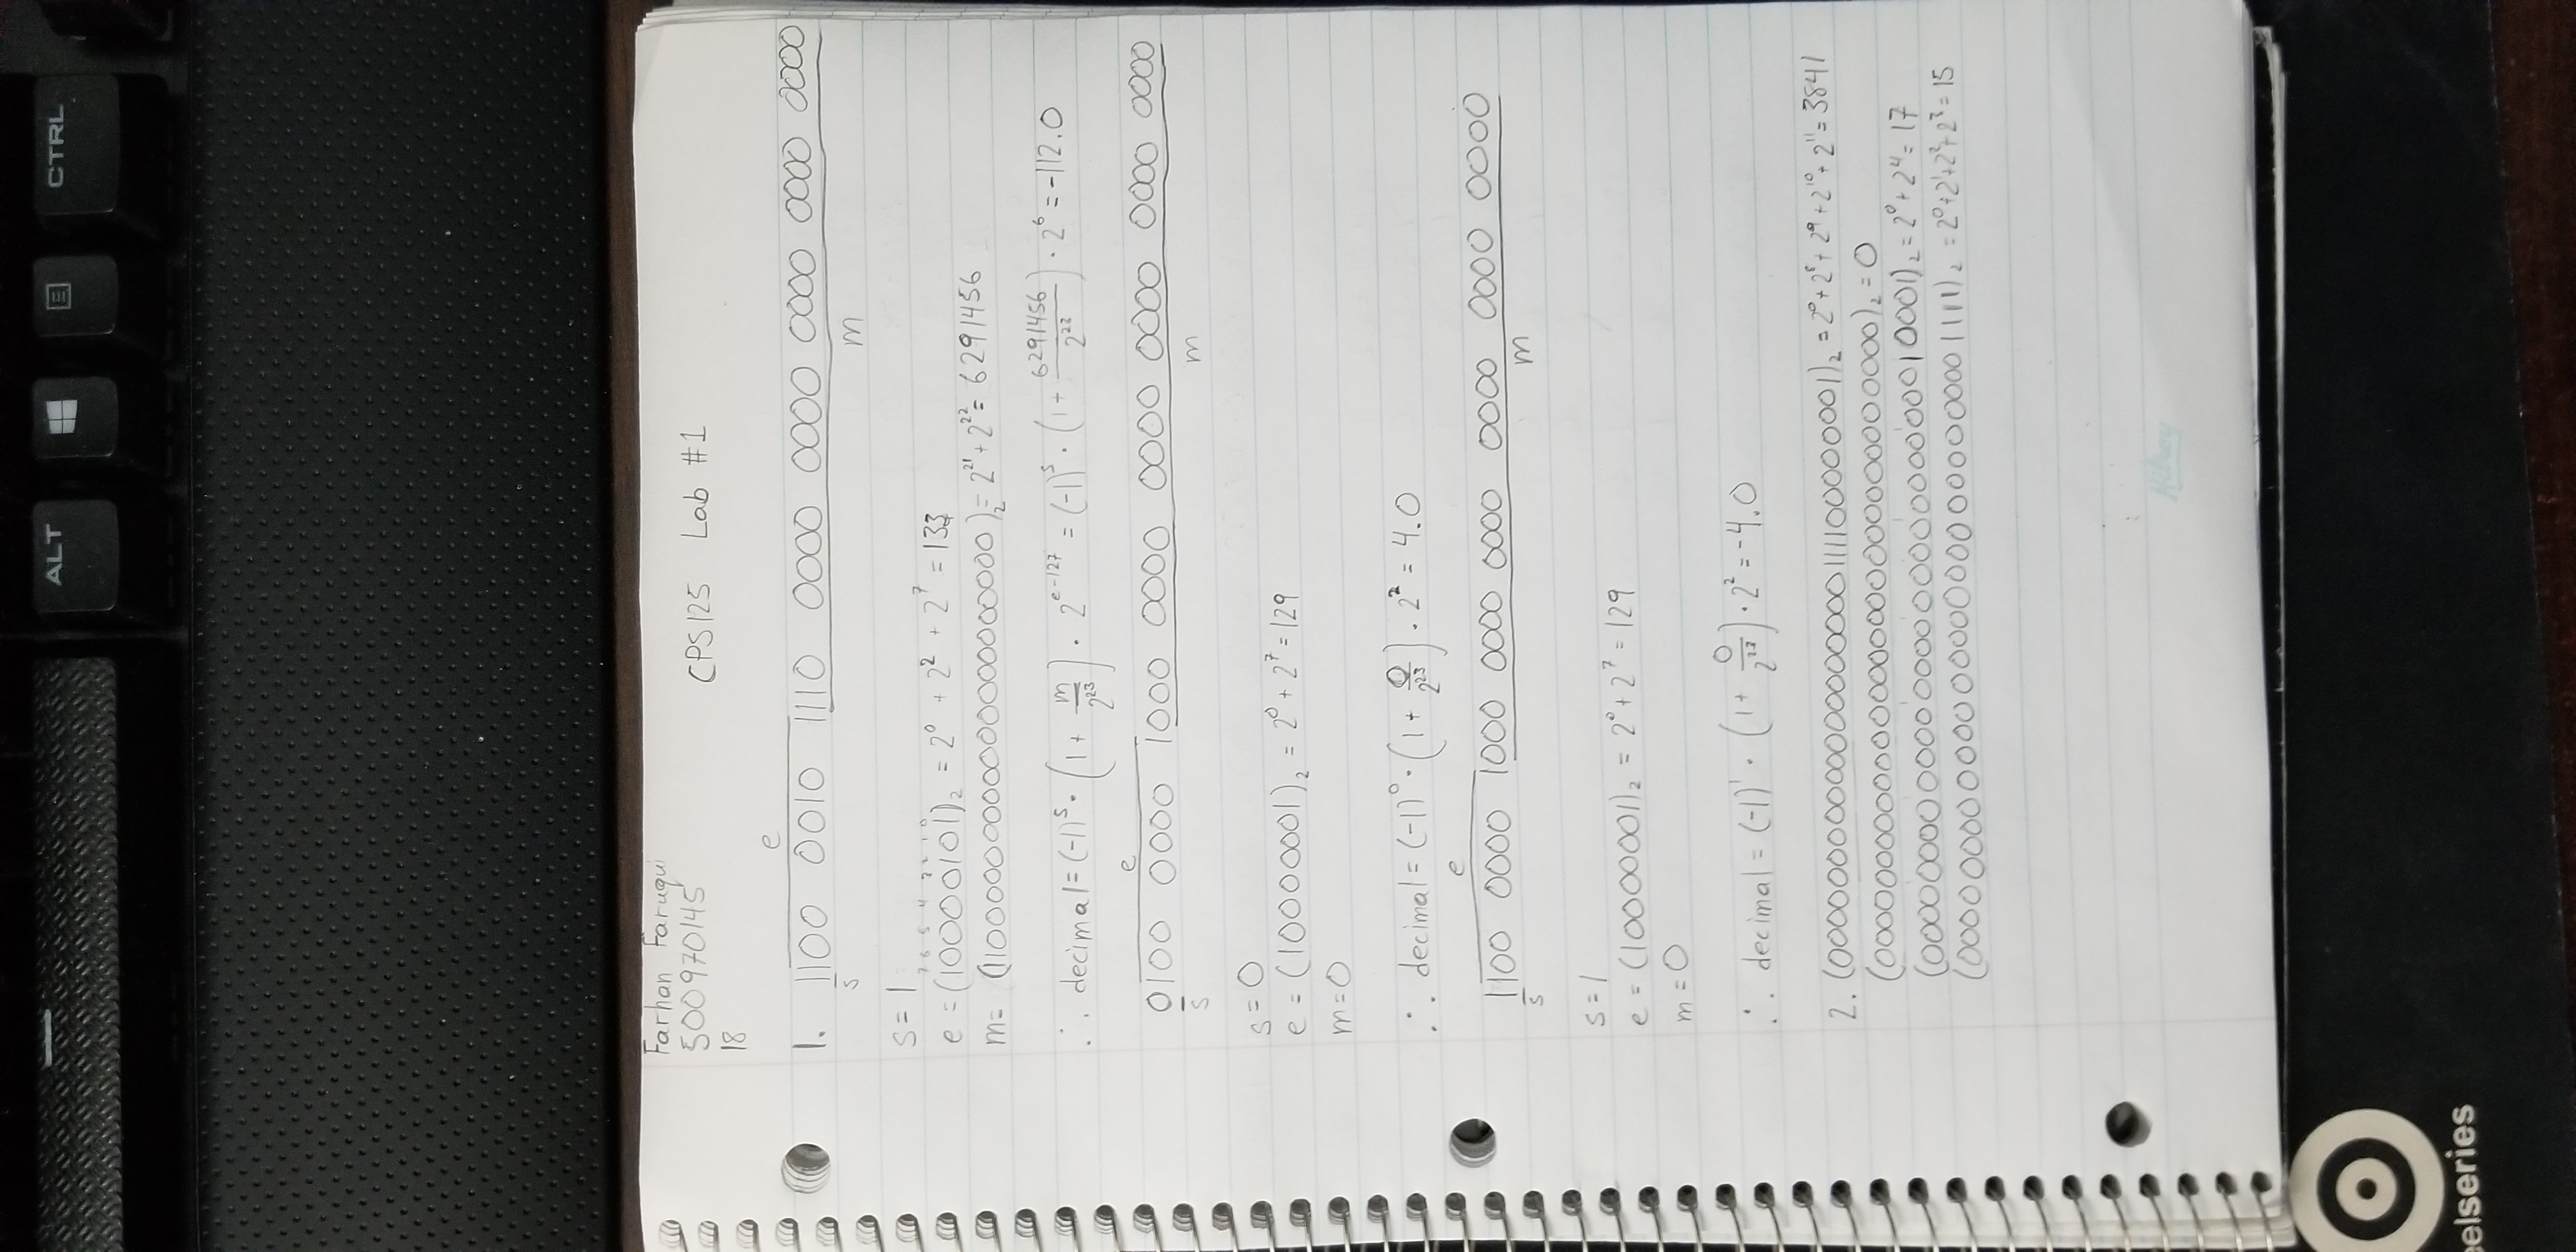 ALT CTRL
Farhan Faruqui
500970145
CPS125 Lab #1
18
e
1. 1100 0010 1110 0000 0000 0000 0000 0000
s m
s = 1
7 6 5 4 3 2 1 0
e = (10000101)₂ = 2⁰ + 2² + 2⁷ = 133
m = (11000000000000000000000)₂ = 2²¹ + 2²² = 6291456
∴ decimal = (-1)ˢ · (1 + m/2²³) · 2ᵉ⁻¹²⁷ = (-1)ˢ · (1 + 6291456/2²³) · 2⁶ = -112.0
e
0100 0000 1000 0000 0000 0000 0000 0000
s m
s = 0
e = (10000001)₂ = 2⁰ + 2⁷ = 129
m = 0
∴ decimal = (-1)⁰ · (1 + 0/2²³) · 2² = 4.0
e
1100 0000 1000 0000 0000 0000 0000 0000
s m
s = 1
e = (10000001)₂ = 2⁰ + 2⁷ = 129
m = 0
∴ decimal = (-1)¹ · (1 + 0/2²³) · 2² = -4.0
2. (00000000000000000000111100000001)₂ = 2⁰ + 2⁸ + 2⁹ + 2¹⁰ + 2¹¹ = 3841
(00000000000000000000000000000000)₂ = 0
(00000000000000000000000000010001)₂ = 2⁰ + 2⁴ = 17
(00000000000000000000000000001111)₂ = 2⁰ + 2¹ + 2² + 2³ = 15
Hilroy
eelseries